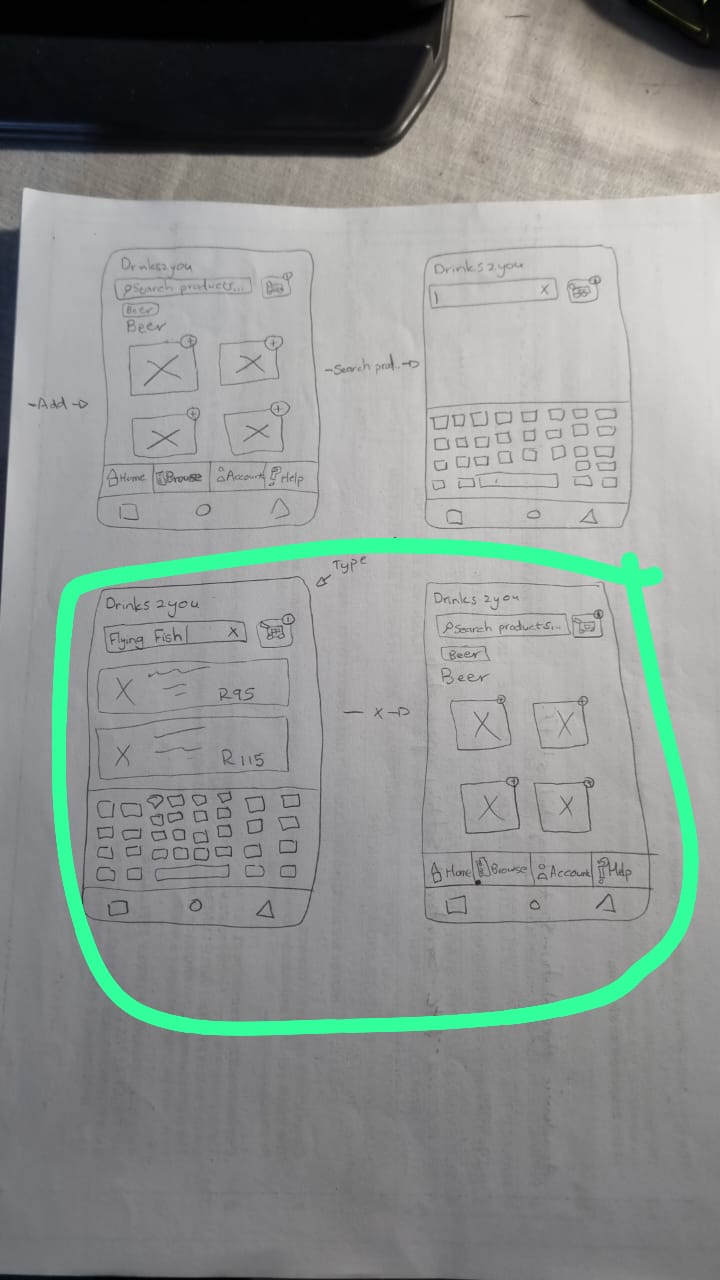 Drinks2you
Search products...
Beer
Beer
Home Browse Account Help
-Add->
-Search prod..->
Drinks2you
X
Type
Drinks 2you
Flying Fish X
X R95
X R115
- X ->
Drinks 2you
Search products...
Beer
Beer
Home Browse Account Help